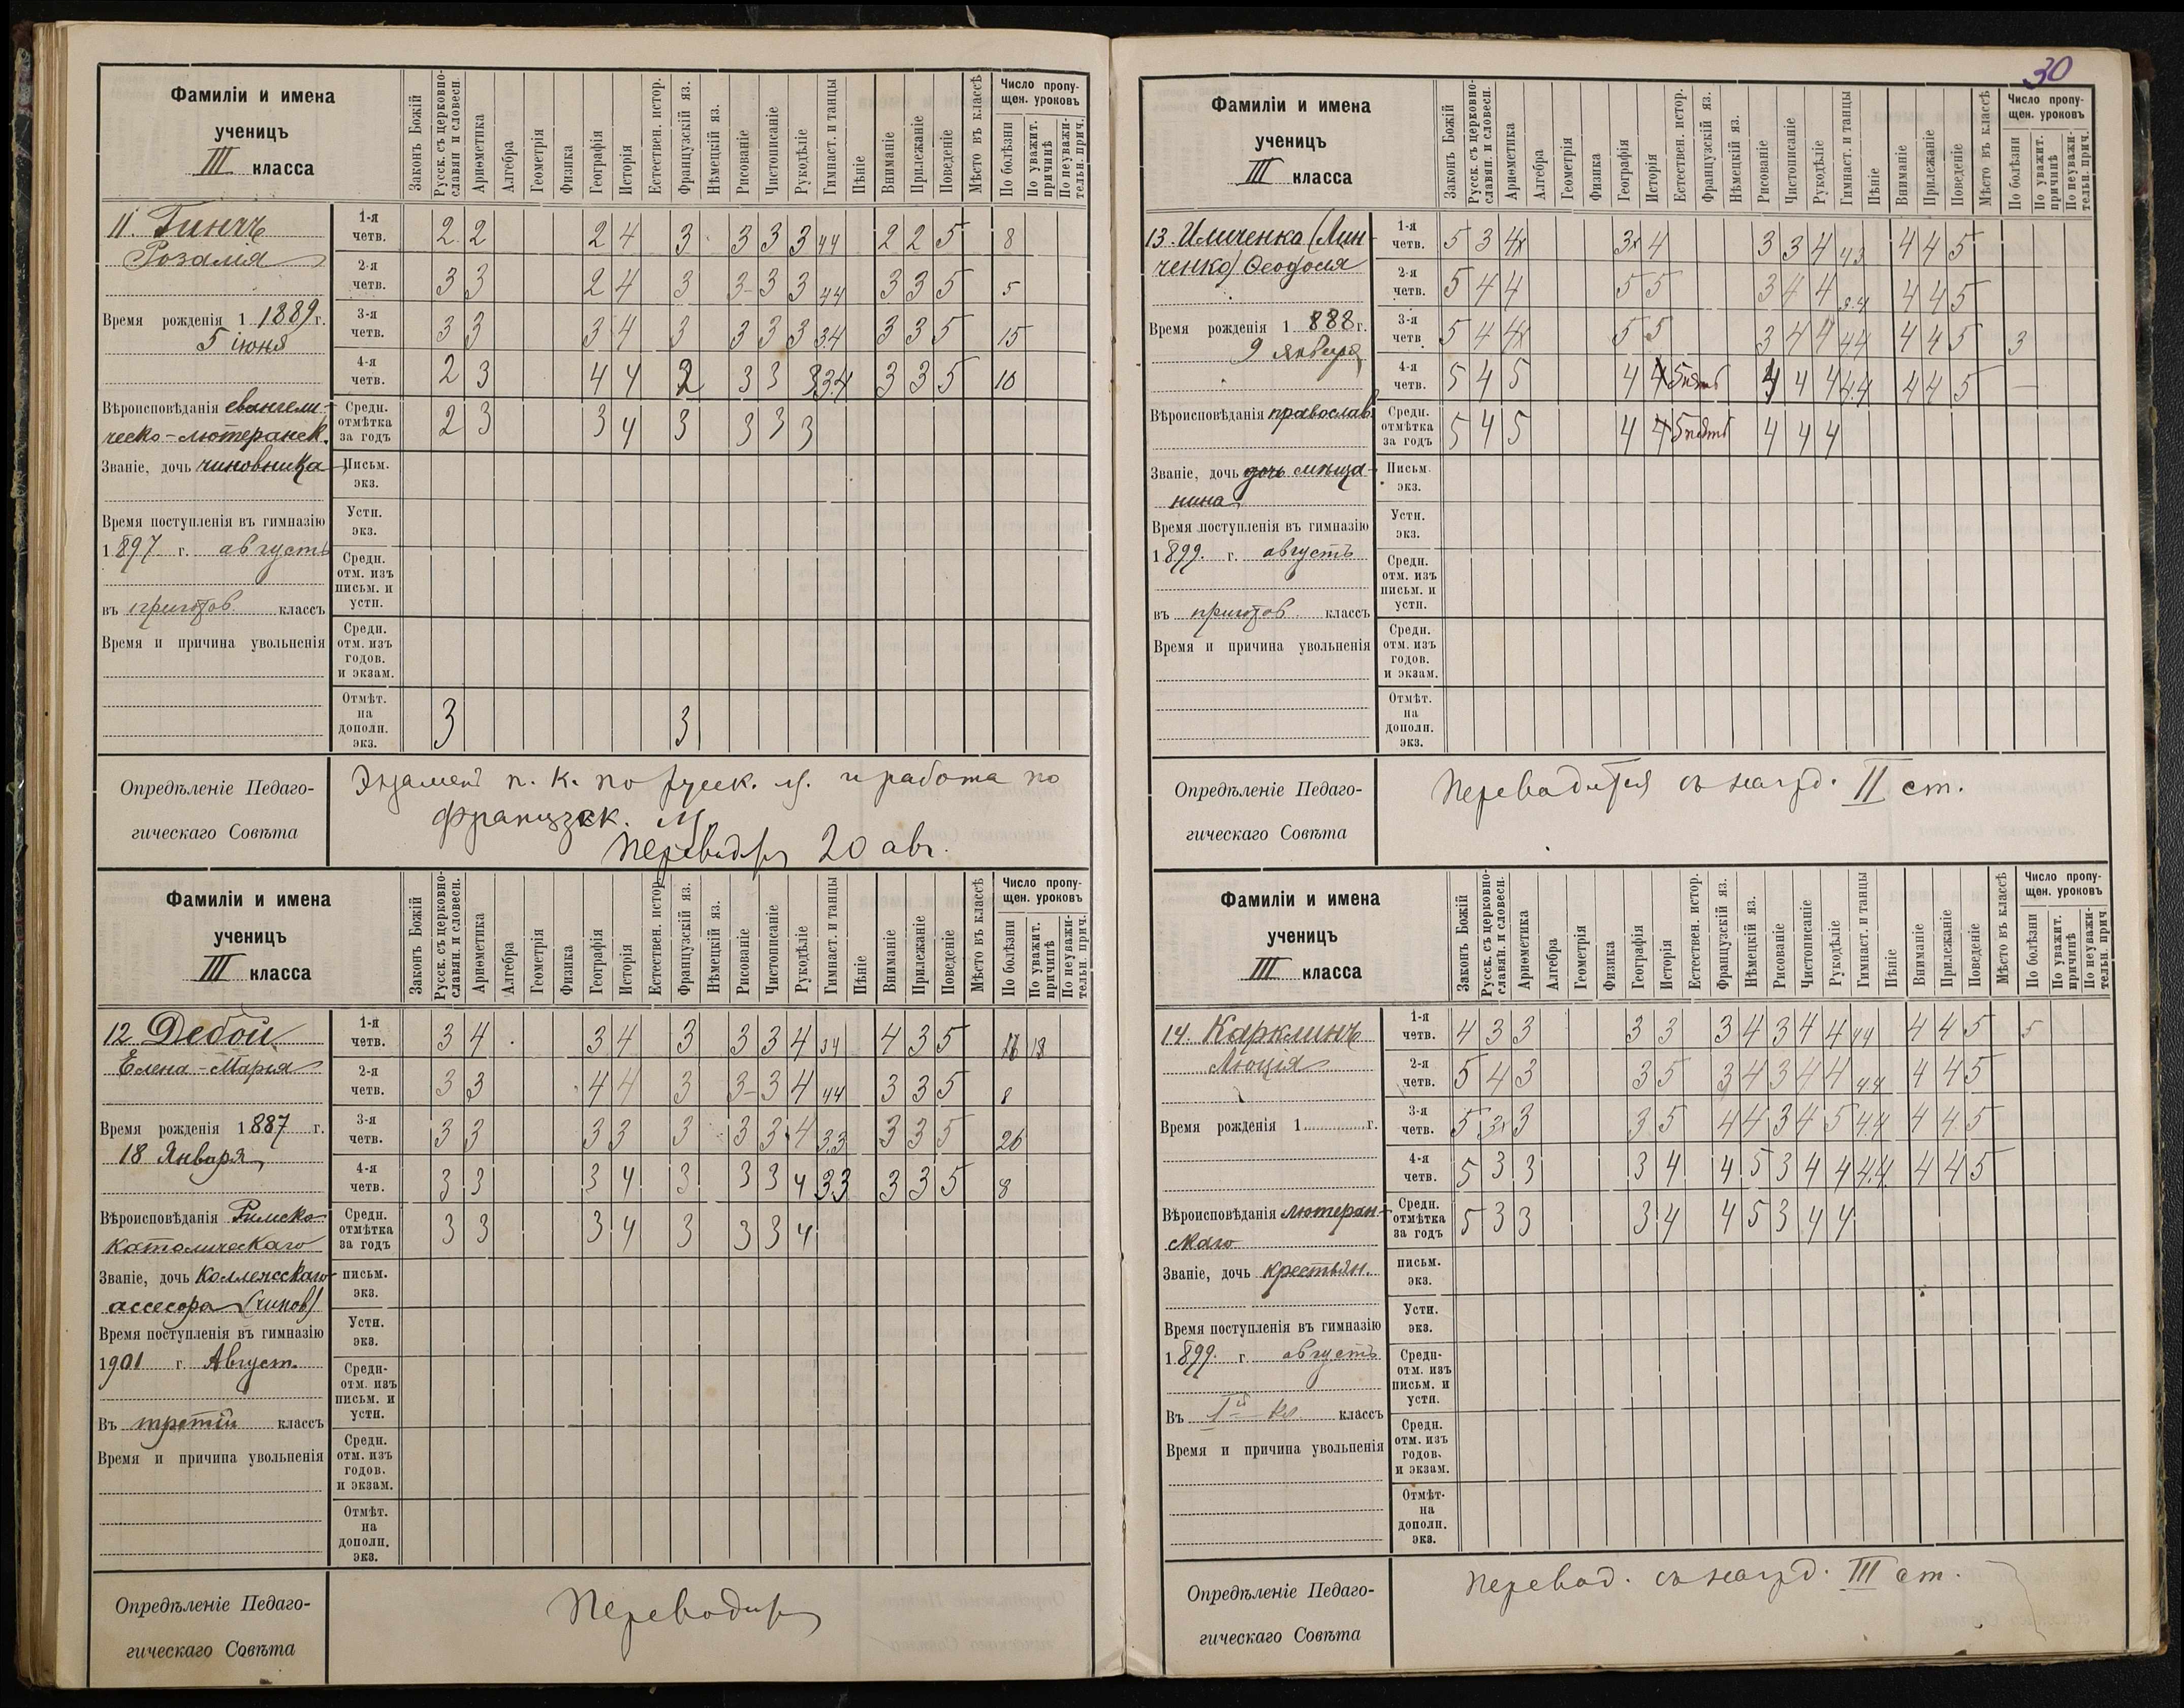 30
Фамиліи и имена
ученицъ
III класса
Законъ Божій
Русск. съ церковно-славян. и словесн.
Ариѳметика
Алгебра
Геометрія
Физика
Географія
Исторія
Естествен. истор.
Французскій яз.
Нѣмецкій яз.
Рисованіе
Чистописаніе
Рукодѣліе
Гимнаст. и танцы
Пѣніе
Вниманіе
Прилежаніе
Поведеніе
Мѣсто въ классѣ
Число пропу-
щен. уроковъ
По болѣзни
По уважит. причинѣ
По неуважи-тельн. прич.
11.
Розалія
Время рожденія 1 1889 г.
5 іюня
Вѣроисповѣданія евангели-
ческо-лютеранск.
Званіе, дочь чиновника
Время поступленія въ гимназію
1 897 г. августъ
въ приготов. классъ
Время и причина увольненія
1-я четв. 2 2 2 4 3 3 3 3 44 2 2 5 8
2-я четв. 3 3 2 4 3 3 3 3 44 3 3 5 5
3-я четв. 3 3 3 4 3 3 3 3 34 3 3 5 15
4-я четв. 2 3 4 4 2 3 3 3 3.4 3 3 5 10
Средн. отмѣтка за годъ 2 3 3 4 3 3 3 3
Письм. экз.
Устн. экз.
Средн. отм. изъ письм. и устн.
Средн. отм. изъ годов. и экзам.
Отмѣт. на дополн. экз. 3 3
Опредѣленіе Педаго-
гическаго Совѣта
Экзаменъ п. к. по русск. яз. и работа по
французск. яз.
Переводится 20 авг.
Фамиліи и имена
ученицъ
III класса
Законъ Божій
Русск. съ церковно-славян. и словесн.
Ариѳметика
Алгебра
Геометрія
Физика
Географія
Исторія
Естествен. истор.
Французскій яз.
Нѣмецкій яз.
Рисованіе
Чистописаніе
Рукодѣліе
Гимнаст. и танцы
Пѣніе
Вниманіе
Прилежаніе
Поведеніе
Мѣсто въ классѣ
Число пропу-
щен. уроковъ
По болѣзни
По уважит. причинѣ
По неуважи-тельн. прич.
12 Дебой
Елена-Марія
Время рожденія 1 887 г.
18 Января
Вѣроисповѣданія Римско-
Католическаго
Званіе, дочь Коллежскаго
ассесора (чинов)
Время поступленія въ гимназію
1901 г. Август.
Въ третій классъ
Время и причина увольненія
1-я четв. 3 4 3 4 3 3 3 4 34 4 3 5 18
2-я четв. 3 3 4 4 3 3 3 4 44 3 3 5 8
3-я четв. 3 3 3 3 3 3 3 4 3.3 3 3 5 26
4-я четв. 3 3 3 4 3 3 3 4 33 3 3 5 8
Средн. отмѣтка за годъ 3 3 3 4 3 3 3 4
письм. экз.
Устн. экз.
Средн- отм. изъ письм. и устн.
Средн. отм. изъ годов. и экзам.
Отмѣт. на дополн. экз.
Опредѣленіе Педаго-
гическаго Совѣта
Переводится
Фамиліи и имена
ученицъ
III класса
Законъ Божій
Русск. съ церковно-славян. и словесн.
Ариѳметика
Алгебра
Геометрія
Физика
Географія
Исторія
Естествен. истор.
Французскій яз.
Нѣмецкій яз.
Рисованіе
Чистописаніе
Рукодѣліе
Гимнаст. и танцы
Пѣніе
Вниманіе
Прилежаніе
Поведеніе
Мѣсто въ классѣ
Число пропу-
щен. уроковъ
По болѣзни
По уважит. причинѣ
По неуважи-тельн. прич.
13. Ильченко (Лин-
ченко) Ѳеодосія
Время рожденія 1 888 г.
9 января
Вѣроисповѣданія православ.
Званіе, дочь дочь мѣща-
нина
Время поступленія въ гимназію
1 899. г. августъ
въ приготов. классъ
Время и причина увольненія
1-я четв. 5 3 4x 3x 4 3 3 4 43 4 4 5
2-я четв. 5 4 4 5 5 3 4 4 4 4 5
3-я четв. 5 4 4x 5 5 3 4 4 44 4 4 5 3
4-я четв. 5 4 5 4 4 5 пять 4 4 4 4.4 4 4 5 —
Средн. отмѣтка за годъ 5 4 5 4 4 5 пять 4 4 4
Письм. экз.
Устн. экз.
Средн. отм. изъ письм. и устн.
Средн. отм. изъ годов. и экзам.
Отмѣт. на дополн. экз.
Опредѣленіе Педаго-
гическаго Совѣта
Переводится съ наград. II ст.
Фамиліи и имена
ученицъ
III класса
Законъ Божій
Русск. съ церковно-славян. и словесн.
Ариѳметика
Алгебра
Геометрія
Физика
Географія
Исторія
Естествен. истор.
Французскій яз.
Нѣмецкій яз.
Рисованіе
Чистописаніе
Рукодѣліе
Гимнаст. и танцы
Пѣніе
Вниманіе
Прилежаніе
Поведеніе
Мѣсто въ классѣ
Число пропу-
щен. уроковъ
По болѣзни
По уважит. причинѣ
По неуважи-тельн. прич
14. Карклинъ
Люція
Время рожденія 1 г.
Вѣроисповѣданія лютеран-
скаго
Званіе, дочь крестьян.
Время поступленія въ гимназію
1 899. г. августъ
Въ Iй кл классъ
Время и причина увольненія
1-я четв. 4 3 3 3 3 3 4 3 4 4 44 4 4 5 5
2-я четв. 5 4 3 3 5 3 4 3 4 4 44 4 4 5
3-я четв. 5 3x 3 3 5 4 4 3 4 5 4.4 4 4 5
4-я четв. 5 3 3 3 4 4 5 3 4 4 4.4 4 4 5
Средн. отмѣтка за годъ 5 3 3 3 4 4 5 3 4 4
письм. экз.
Устн. экз.
Средн- отм. изъ письм. и устн.
Средн. отм. изъ годов. и экзам.
Отмѣт- на дополн. экз.
Опредѣленіе Педаго-
гическаго Совѣта
Перевод. съ наград. III ст.